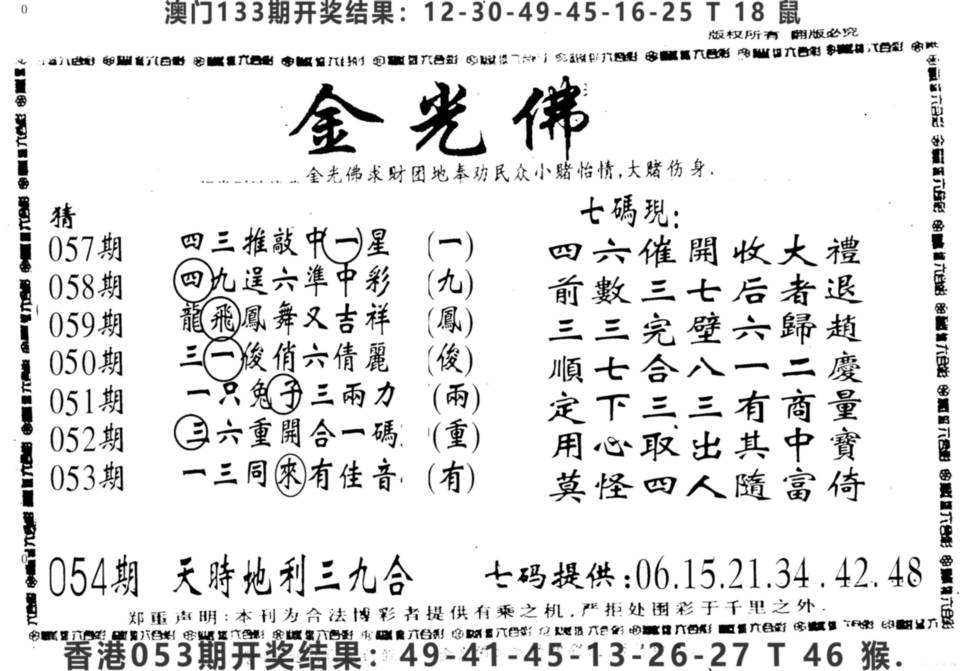 澳门133期开奖结果：12-30-49-45-16-25 T 18 鼠
版权所有 翻版必究
金光佛
金光佛求财团地奉劝民众小赌怡情，大赌伤身.
猜
七碼現：
057期 四三推敲中一星 (一) 四六催開收大禮
058期 四九逞六準中彩 (九) 前數三七后者退
059期 龍飛鳳舞又吉祥 (鳳) 三三完壁六歸趙
050期 三一俊俏六倩麗 (俊) 順七合八一二慶
051期 一只兔子三兩力 (兩) 定下三三有商量
052期 三六重開合一碼 (重) 用心取出其中寶
053期 一三同來有佳音 (有) 莫怪四人隨富倚
054期 天時地利三九合 七码提供：06.15.21.34.42.48
郑重声明：本刊为合法博彩者提供有乘之机，严拒处围彩于千里之外.
香港053期开奖结果：49-41-45-13-26-27 T 46 猴